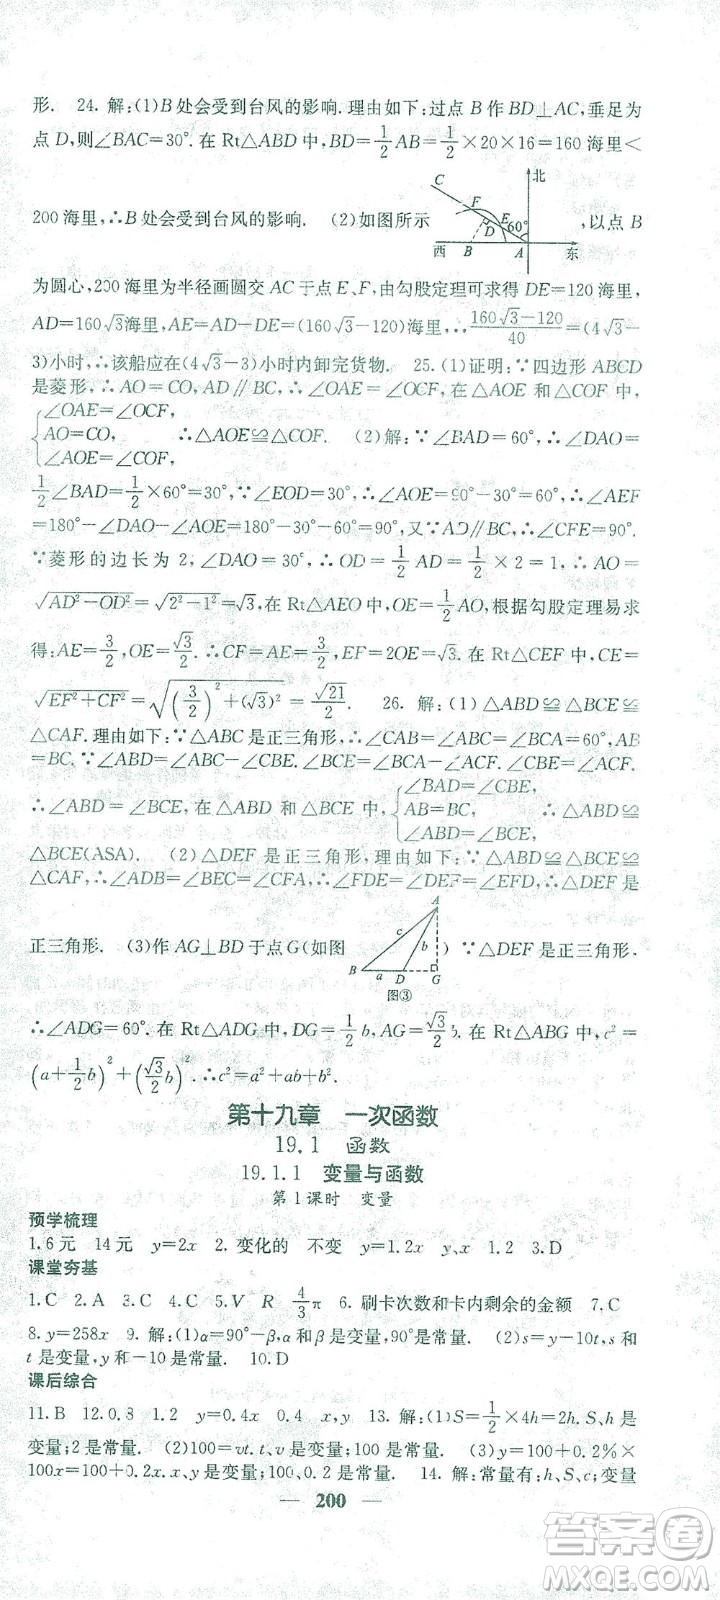 形. 24. 解:(1)B处会受到台风的影响.理由如下:过点B作BD⊥AC,垂足为
点D,则∠BAC=30°.在Rt△ABD中,BD=1/2AB=1/2×20×16=160海里<
北
C
F
E
60°
D
西 B A 东
200海里,∴B处会受到台风的影响. (2)如图所示 ,以点B
为圆心,200海里为半径画圆交AC于点E、F,由勾股定理可求得DE=120海里,
AD=160√3海里,AE=AD-DE=(160√3-120)海里,∴(160√3-120)/40=(4√3-
3)小时,∴该船应在(4√3-3)小时内卸完货物. 25. (1)证明:∵四边形ABCD
是菱形,∴AO=CO,AD∥BC,∴∠OAE=∠OCF,在△AOE和△COF中,
{∠OAE=∠OCF,
AO=CO, ∴△AOE≌△COF. (2)解:∵∠BAD=60°,∴∠DAO=
∠AOE=∠COF,
1/2∠BAD=1/2×60°=30°,∵∠EOD=30°,∴∠AOE=90°-30°=60°,∴∠AEF
=180°-∠DAO-∠AOE=180°-30°-60°=90°,又∵AD∥BC,∴∠CFE=90°.
∵菱形的边长为2,∠DAO=30°,∴OD=1/2AD=1/2×2=1,∴AO=
√(AD²-OD²)=√(2²-1²)=√3,在Rt△AEO中,∠DAO=30°,根据勾股定理易求
得:AE=3/2,OE=√3/2.∴CF=AE=3/2,EF=2OE=√3.在Rt△CEF中,CE=
√(EF²+CF²)=√((3/2)²+(√3)²)=√21/2. 26. 解:(1)△ABD≌△BCE≌
△CAF.理由如下:∵△ABC是正三角形,∴∠CAB=∠ABC=∠BCA=60°,AB=
BC.∵∠ABD=∠ABC-∠CBE.∠BCE=∠BCA-∠ACF,∠CBE=∠ACF.
∴∠ABD=∠BCE,在△ABD和△BCE中,{∠BAD=∠CBE,
AB=BC, ∴△ABD≌
∠ABD=∠BCE,
△BCE(ASA). (2)△DEF是正三角形,理由如下:∵△ABD≌△BCE≌
△CAF,∴∠ADB=∠BEC=∠CFA,∴∠FDE=∠DEF=∠EFD,∴△DEF是
A
c
b
B a D G
图③
正三角形. (3)作AG⊥BD于点G(如图 )∵△DEF是正三角形,
∴∠ADG=60°.在Rt△ADG中,DG=1/2b,AG=√3/2b.在Rt△ABG中,c²=
(a+1/2b)²+(√3/2b)².∴c²=a²+ab+b².
第十九章 一次函数
19.1 函数
19.1.1 变量与函数
第1课时 变量
预学梳理
1.6元 14元 y=2x 2. 变化的 不变 y=1.2x y、x 1.2 3.D
课堂夯基
1.C 2.A 3.C 4.C 5.V R 4/3π 6. 刷卡次数和卡内剩余的金额 7.C
8.y=258x 9. 解:(1)α=90°-β,α和β是变量,90°是常量. (2)s=y-10t,s和
t是变量,y和-10是常量. 10.D
课后综合
11.B 12.0.8 1.2 y=0.4x 0.4 x,y 13. 解:(1)S=1/2×4h=2h.S、h是
变量;2是常量. (2)100=vt.t、v是变量,100是常量. (3)y=100+0.2%×
100x=100+0.2x.x、y是变量;100,0.2是常量. 14. 解:常量有;变量
— 200 —
答案卷